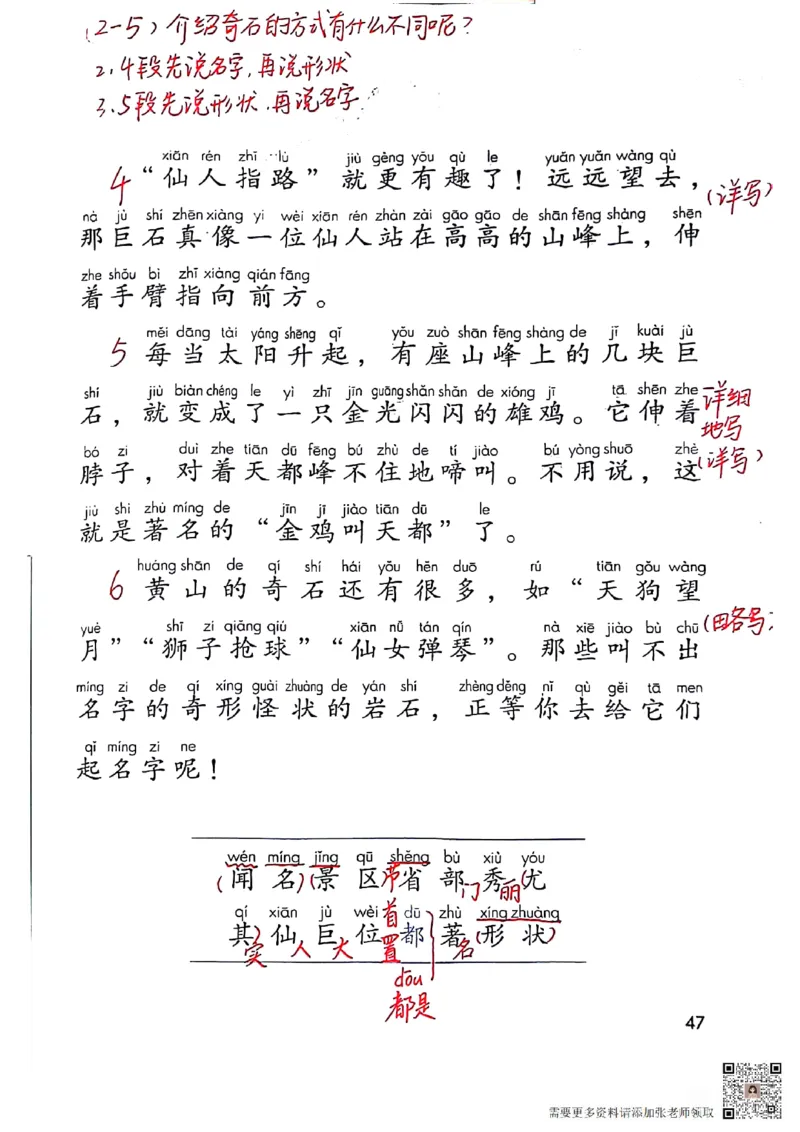 (2-5)介绍奇石的方式有什么不同呢?
2.4段先说名字,再说形状
3.5段先说形状,再说名字
xiān rén zhǐ lù jiù gèng yǒu qù le yuǎn yuǎn wàng qù
4 “仙人指路”就更有趣了!远远望去, (详写)
nà jù shí zhēn xiàng yí wèi xiān rén zhàn zài gāo gāo de shān fēng shàng shēn
那巨石真像一位仙人站在高高的山峰上,伸
zhe shǒu bì zhǐ xiàng qián fāng
着手臂指向前方。
měi dāng tài yáng shēng qǐ yǒu zuò shān fēng shàng de jǐ kuài jù
5 每当太阳升起,有座山峰上的几块巨
shí jiù biàn chéng le yì zhī jīn guāng shǎn shǎn de xióng jī tā shēn zhe
石,就变成了一只金光闪闪的雄鸡。它伸着 详细地写
bó zi duì zhe tiān dū fēng bú zhù de tí jiào bú yòng shuō zhè
脖子,对着天都峰不住地啼叫。不用说,这 (详写)
jiù shì zhù míng de jīn jī jiào tiān dū le
就是著名的“金鸡叫天都”了。
huáng shān de qí shí hái yǒu hěn duō rú tiān gǒu wàng
6 黄山的奇石还有很多,如“天狗望
yuè shī zi qiǎng qiú xiān nǚ tán qín nà xiē jiào bù chū
月”“狮子抢球”“仙女弹琴”。那些叫不出 (略写)
míng zi de qí xíng guài zhuàng de yán shí zhèng děng nǐ qù gěi tā men
名字的奇形怪状的岩石,正等你去给它们
qǐ míng zi ne
起名字呢!
wén míng jǐng qū shěng bù xiù yóu
(闻名)(景区 省部门秀丽(尤
qí xiān jù wèi dū zhù xíng zhuàng
其)仙巨位都著(形状)
实 人 大 置 名
dōu
都是
47
需要更多资料请添加张老师领取